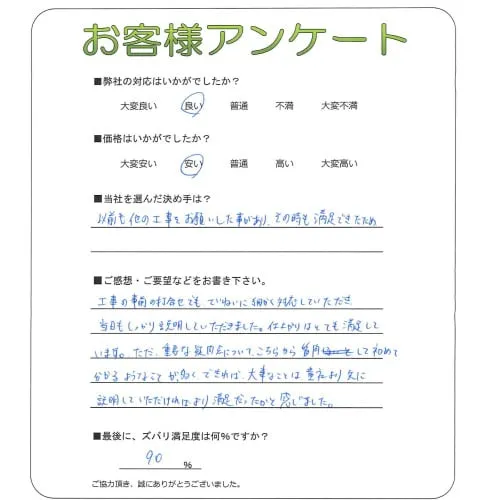 お客様アンケート
■弊社の対応はいかがでしたか？
大変良い 良い 普通 不満 大変不満
■価格はいかがでしたか？
大変安い 安い 普通 高い 大変高い
■当社を選んだ決め手は？
以前も他の工事をお願いした事があり、その時も満足できたため
■ご感想・ご要望などをお書き下さい。
工事の事前の打合せでも ていねいに細かく対応していただき
当日もしっかり説明していただきました。仕上がりはとても満足して
います。ただ、重要な 点について、こちらから質問 して初めて
分かるようなことが多く できれば、大事なことは貴社より先に
説明していただければより満足だったかと感じました。
■最後に、ズバリ満足度は何％ですか？
90 ％
ご協力頂き、誠にありがとうございました。